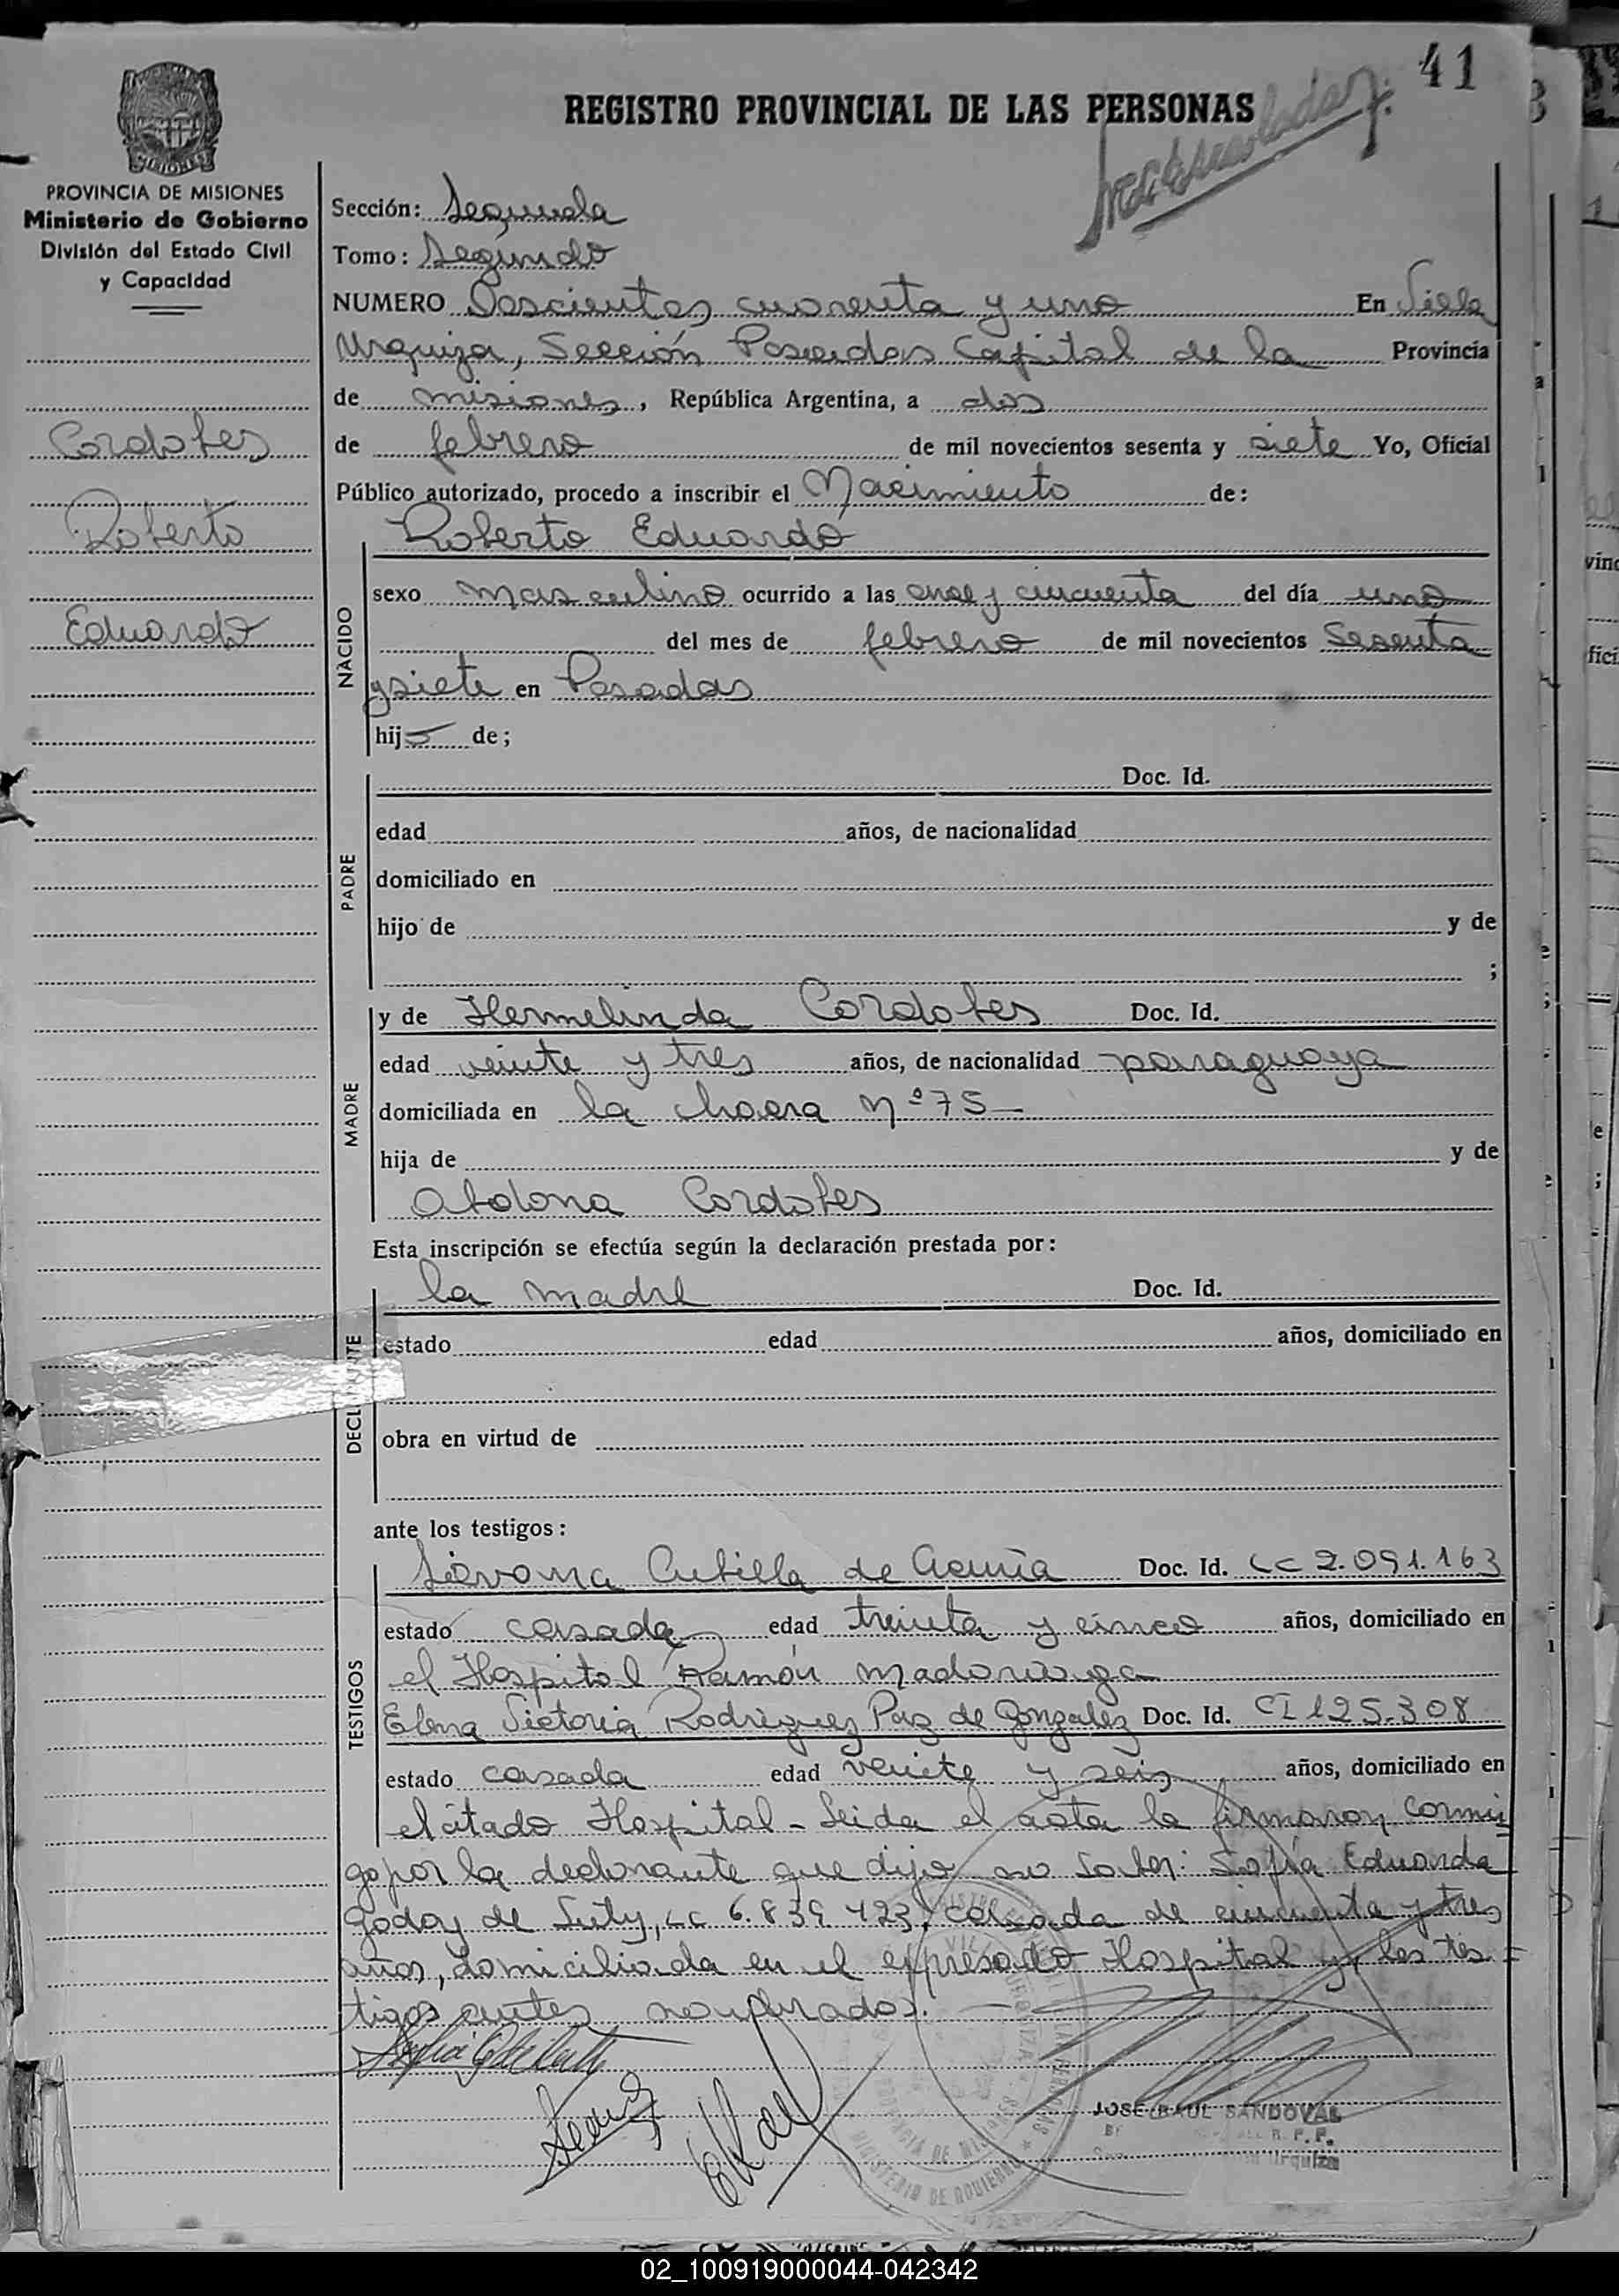 41
REGISTRO PROVINCIAL DE LAS PERSONAS
MISIONES
PROVINCIA DE MISIONES
Ministerio de Gobierno
División del Estado Civil
y Capacidad
Cordobes
Roberto
Eduardo
Sección: Segunda
Tomo: Segundo
NUMERO Doscientos cuarenta y uno En Villa
Urquiza, Sección Posadas Capital de la Provincia
de misiones, República Argentina, a dos
de febrero de mil novecientos sesenta y siete Yo, Oficial
Público autorizado, procedo a inscribir el Nacimiento de:
Roberto Eduardo
NACIDO
sexo masculino ocurrido a las once y cincuenta del día uno
del mes de febrero de mil novecientos Sesenta
y siete en Posadas
hijo de;
PADRE
Doc. Id.
edad años, de nacionalidad
domiciliado en
hijo de y de
;
MADRE
y de Hermelinda Cordobes Doc. Id.
edad veinte y tres años, de nacionalidad paraguaya
domiciliada en la chacra Nº 75
hija de y de
Cordobes
Esta inscripción se efectúa según la declaración prestada por:
la madre Doc. Id.
estado edad años, domiciliado en
obra en virtud de
ante los testigos:
TESTIGOS
Cubilla de Acuña Doc. Id. LC 2.091.163
estado casada edad treinta y cinco años, domiciliado en
el Hospital Ramón Madariaga
Elena Victoria Rodriguez Paz de Gonzalez Doc. Id. CI 125.308
estado casada edad veinte y seis años, domiciliado en
el citado Hospital - Leida el acta la firmaron conmi
go por la declarante que dijo no saber: Sofia Eduarda
Godoy de LC 6.839.423, casada de cincuenta y tres
años, domiciliada en el expresado Hospital y los tes=
tigos antes nombrados.
JOSE RAUL SANDOVAL
R. P. P.
Urquiza
02_100919000044-042342